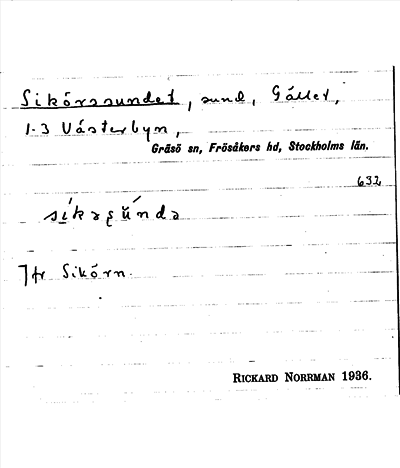 Sikörssundet, sund, Gället,
1-3 Västerbyn,
Gräsö sn, Frösåkers hd, Stockholms län.
632
Jfr Sikörn.
RICKARD NORRMAN 1936.